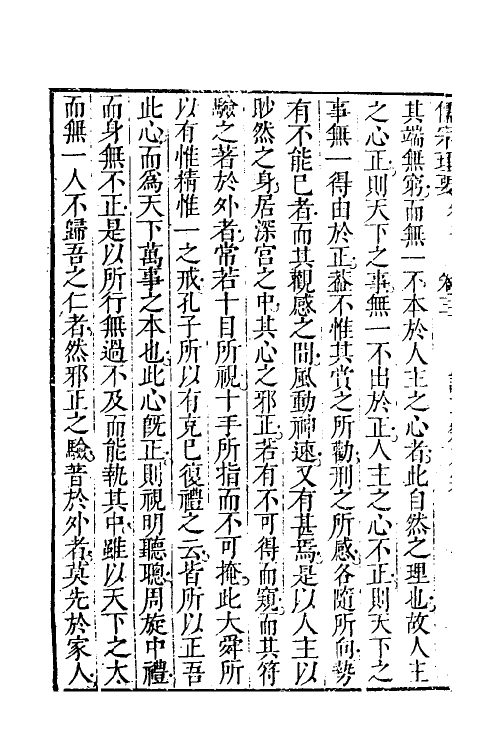 儒宗理要 卷三
其端無窮而無一不本於人主之心者此自然之理也故人主
之心正則天下之事無一不出於正人主之心不正則天下之
事無一得由於正葢不惟其賞之所勸刑之所感各隨所向勢
有不能已者而其觀感之間風動神速又有甚焉是以人主以
眇然之身居深宫之中其心之邪正若有不可得而窺而其符
驗之著於外者常若十目所視十手所指而不可掩此大舜所
以有惟精惟一之戒孔子所以有克巳復禮之云皆所以正吾
此心而爲天下萬事之本也此心旣正則視明聽聰周旋中禮
而身無不正是以所行無過不及而能執其中雖以天下之大
而無一人不歸吾之仁者然邪正之驗著於外者莫先於家人